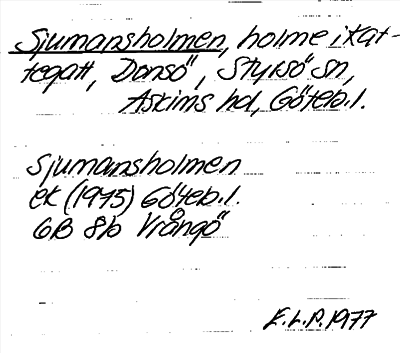 Sjumansholmen, holme i Kat-
tegatt, Donsö, Styrsö sn,
Askims hd, Göteb. l.
Sjumansholmen
ek (1975) Göteb. l.
6B 8b Vrångö
E.L.P. 1977